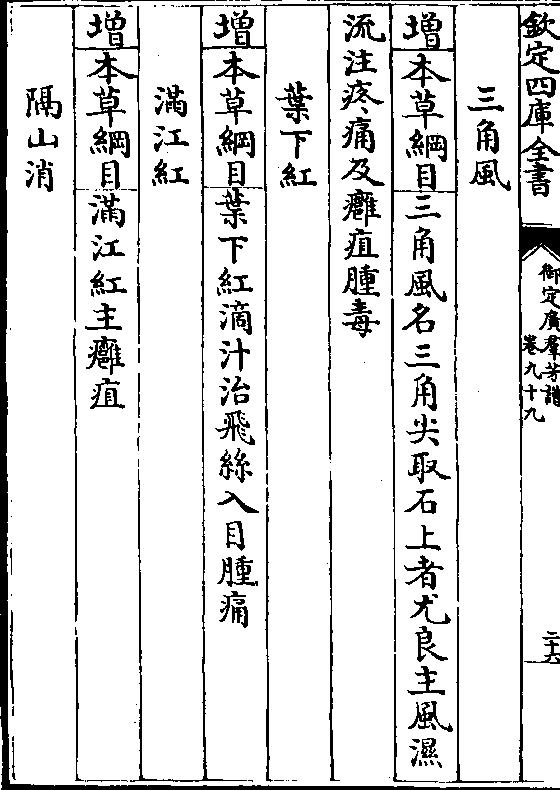 欽定四庫全書
御定廣羣芳譜
卷九十九
二十六
三角風
增本草綱目三角風名三角尖取石上者尤良主風濕
流注疼痛及癰疽腫毒
葉下紅
增本草綱目葉下紅滴汁治飛絲入目腫痛
滿江紅
增本草綱目滿江紅主癰疽
隔山消